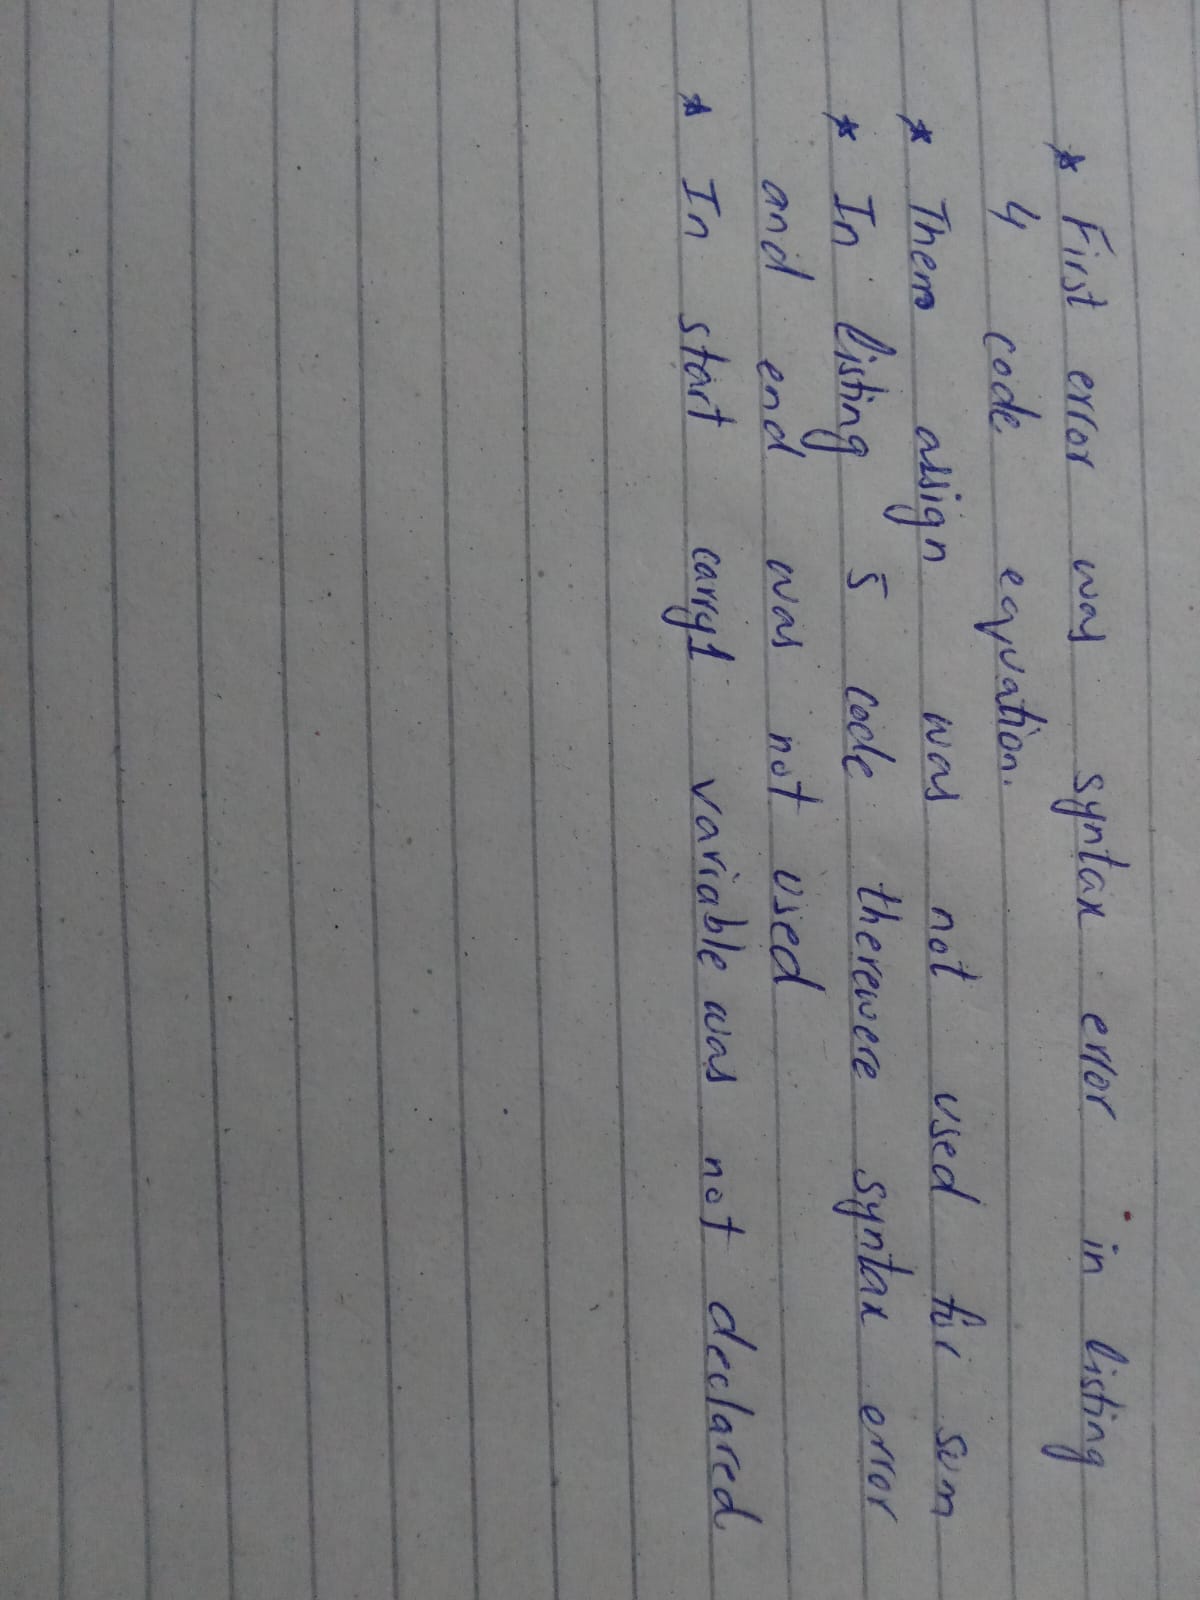 * First error was syntax error in listing
4 code equation.
* Then assign was not used for sum
* In listing 5 code therewere syntax error
and end was not used
* In start carry1 variable was not declared